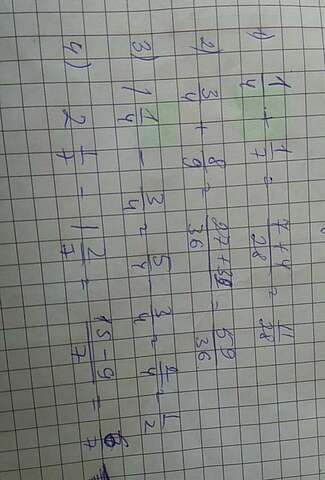 1) 1/4 + 1/7 = 7+4/28 = 11/28
2) 3/4 + 8/9 = 27+32/36 = 59/36
3) 1 1/4 - 3/4 = 5/4 - 3/4 = 2/4 = 1/2
4) 2 1/7 - 1 2/7 = 15-9/7 = 6/7